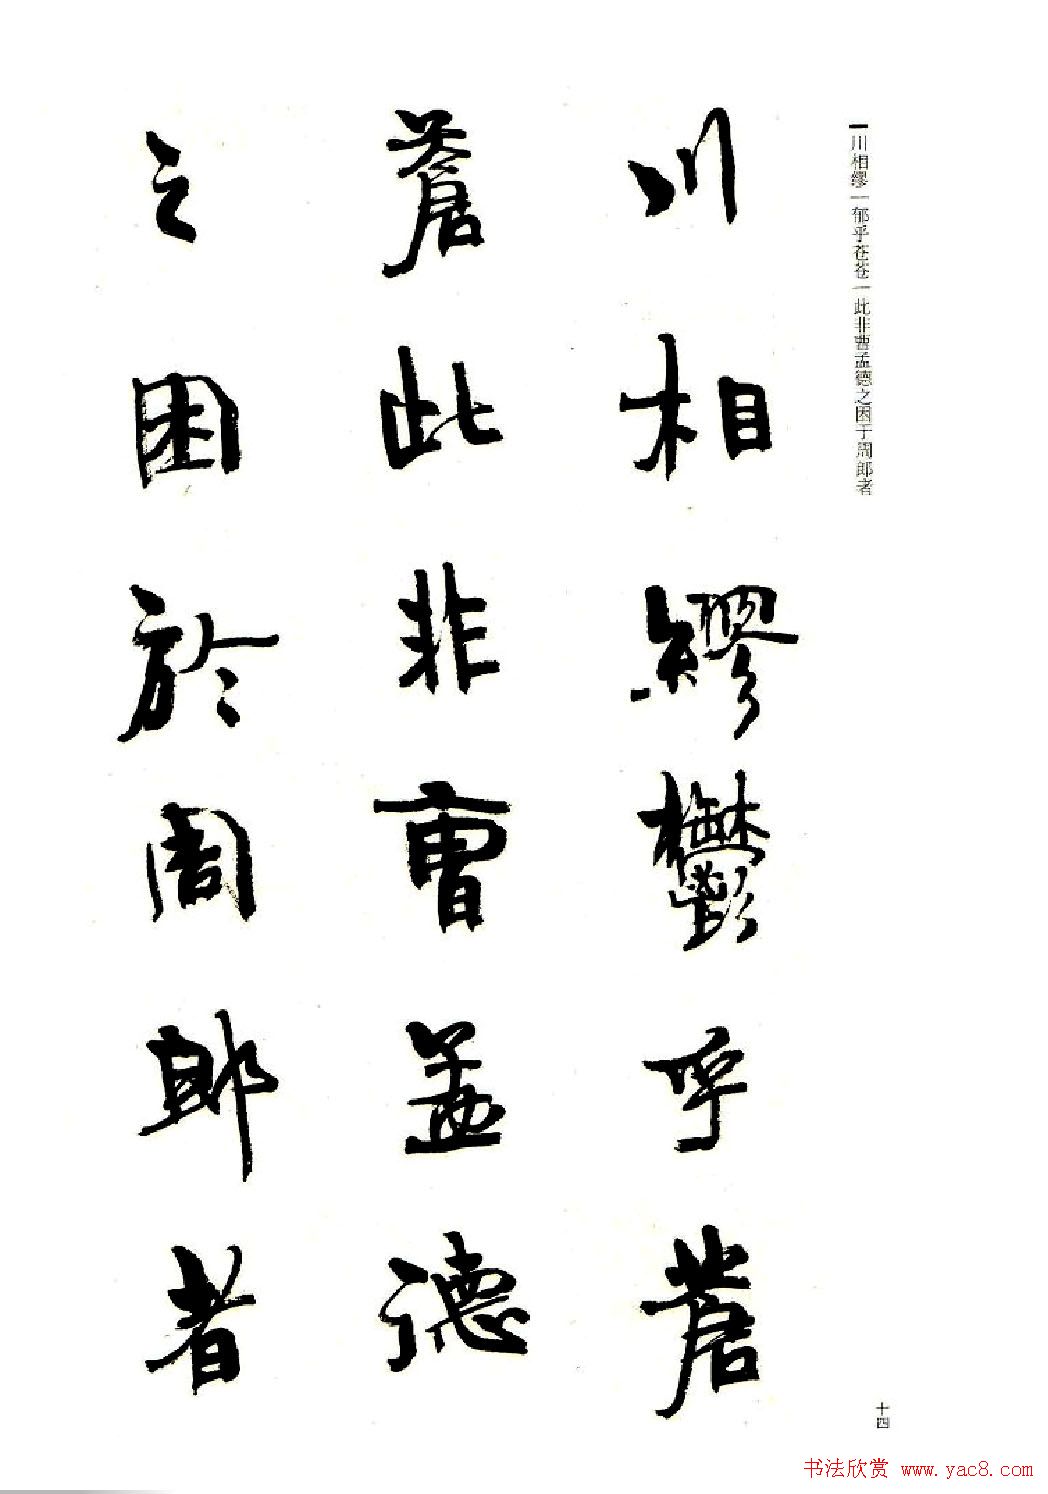 川相缪｜郁乎苍苍｜此非曹孟德之困于周郎者
川相繆鬱乎蒼
蒼此非曹孟德
之困於周郎者
十四
书法欣赏 www.yac8.com